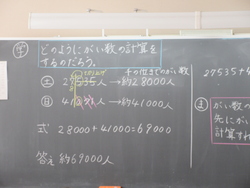 学
どのようにがい数の計算を
するのだろう。
千の位までのがい数
土 27535人→約28000人
日 人→約41000人
式 28000+41000=69000
答え 約69000人
27535+
ま
がい数の
先にがい
計算すれ